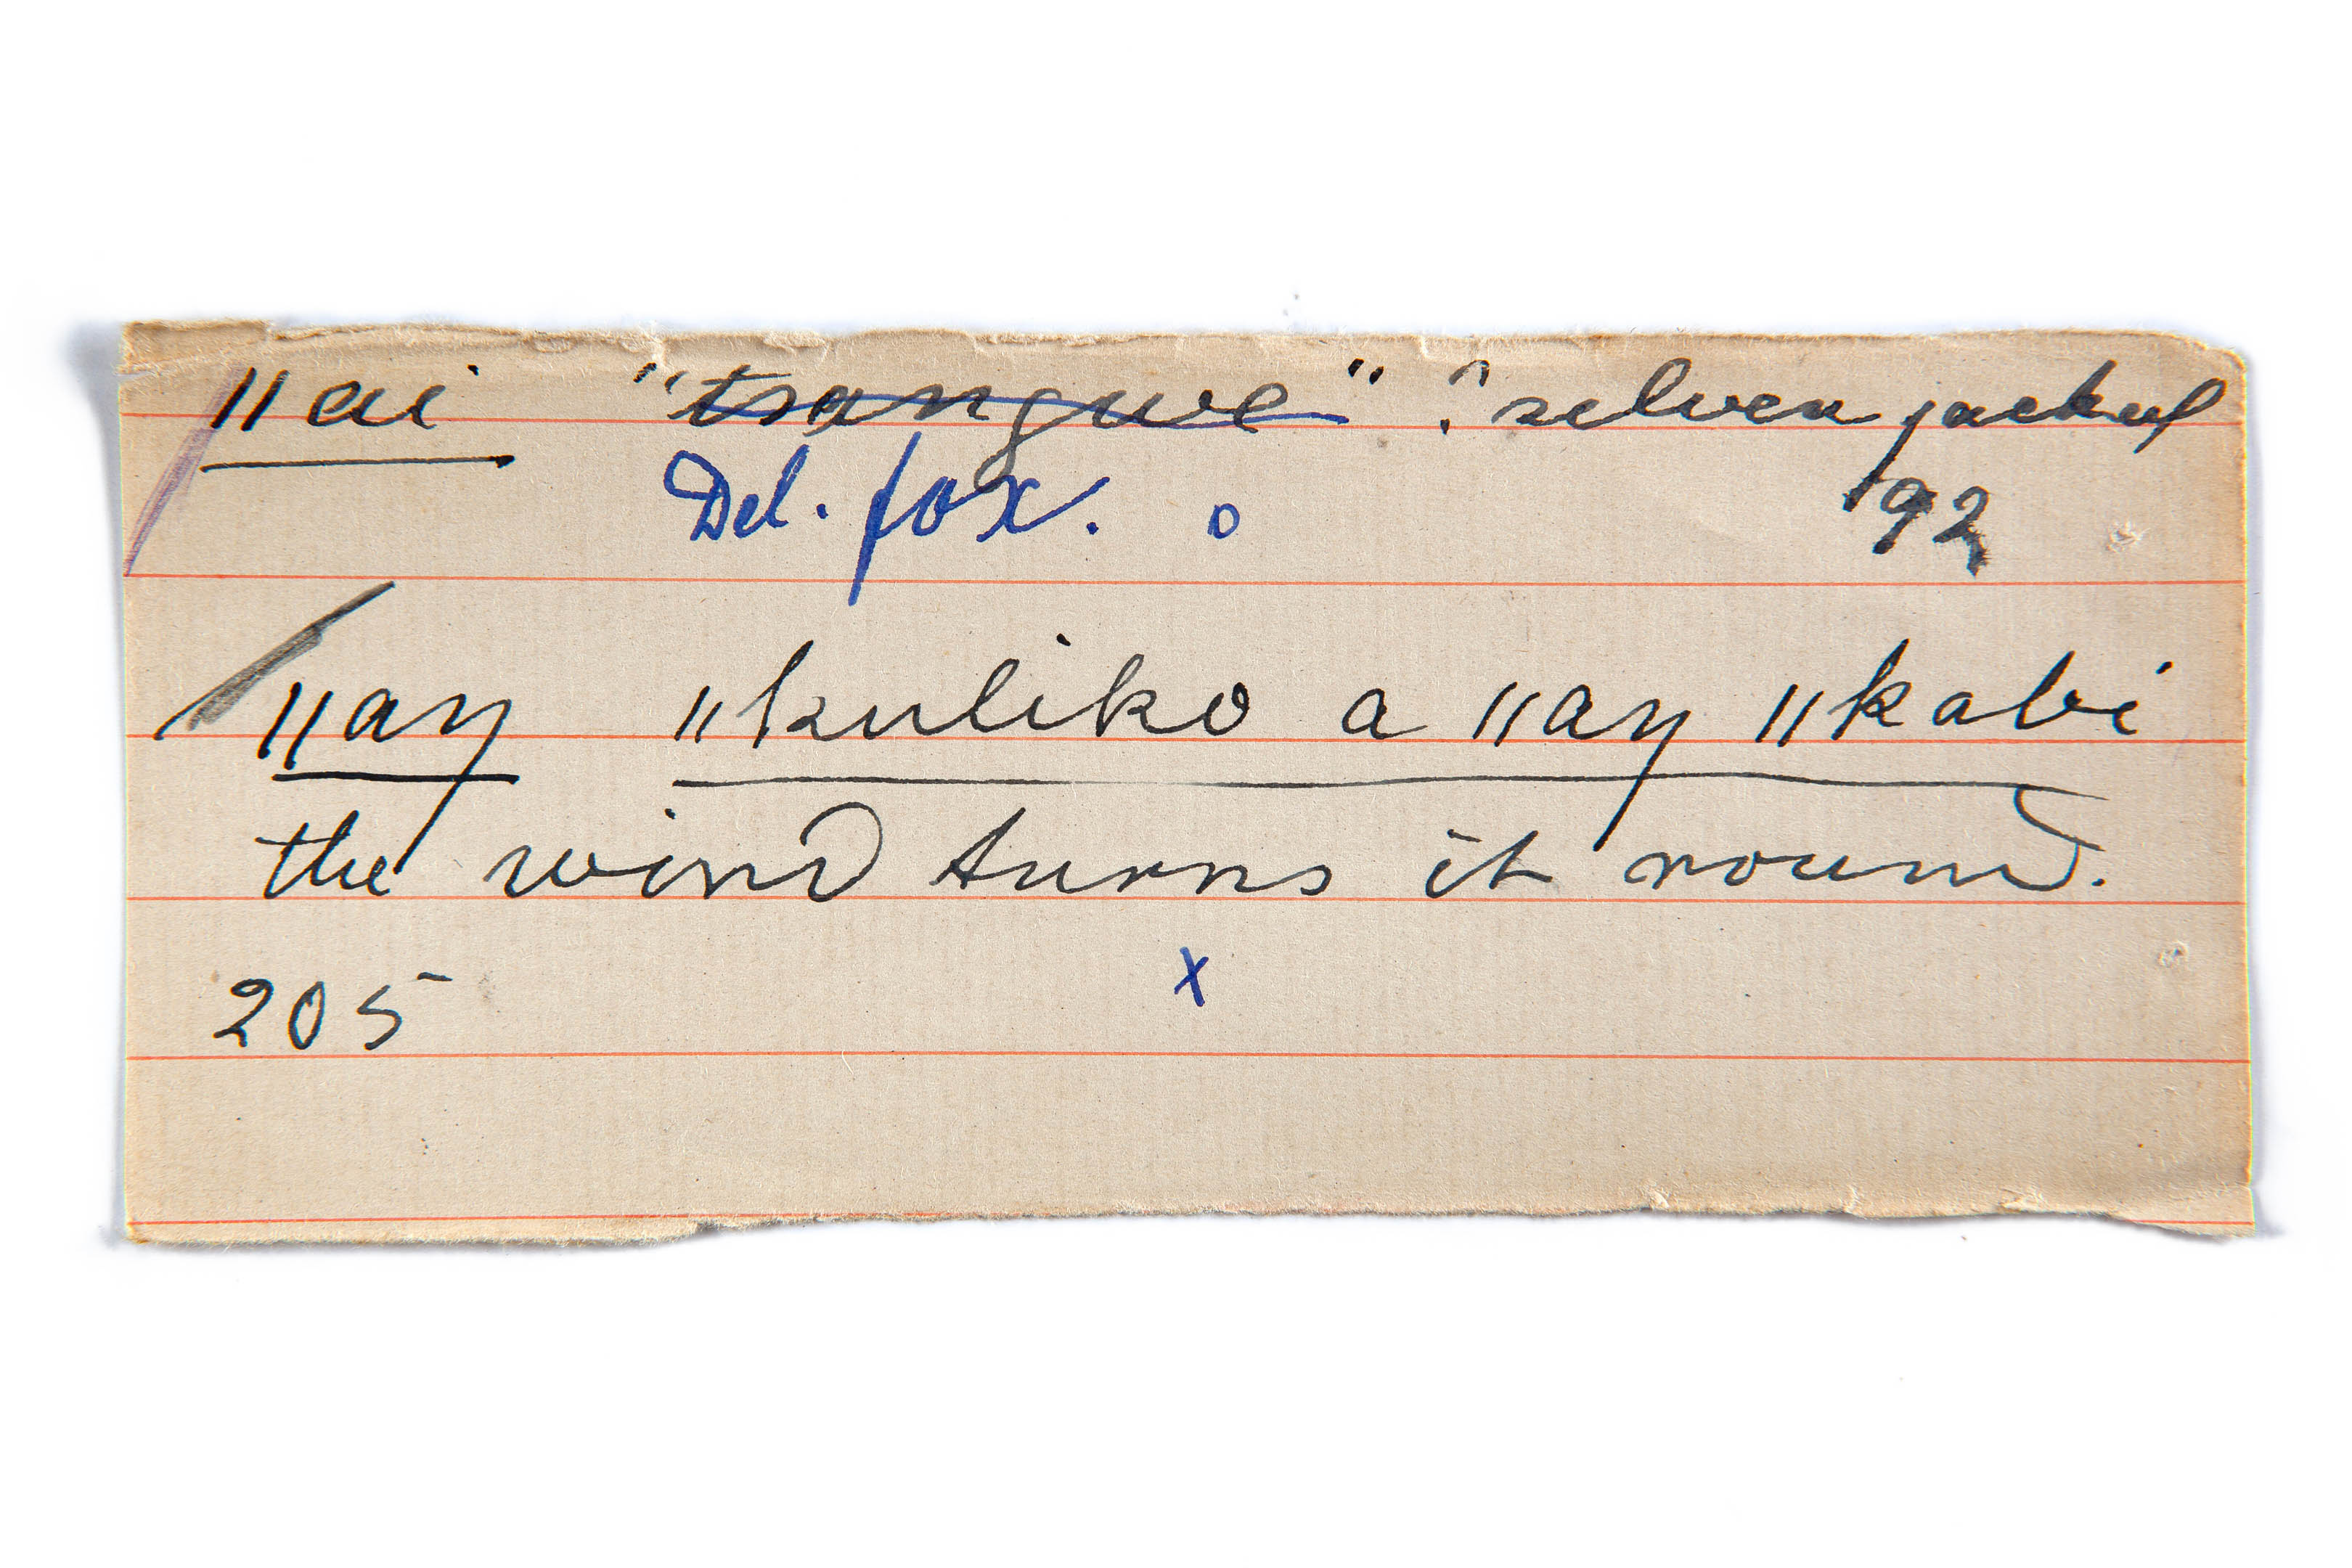 ‖ai "tsangwe" ? silver jackal
Del. fox. o 92
‖aŋ ‖kuliko a ‖aŋ ‖kabi
the wind turns it round.
x
205